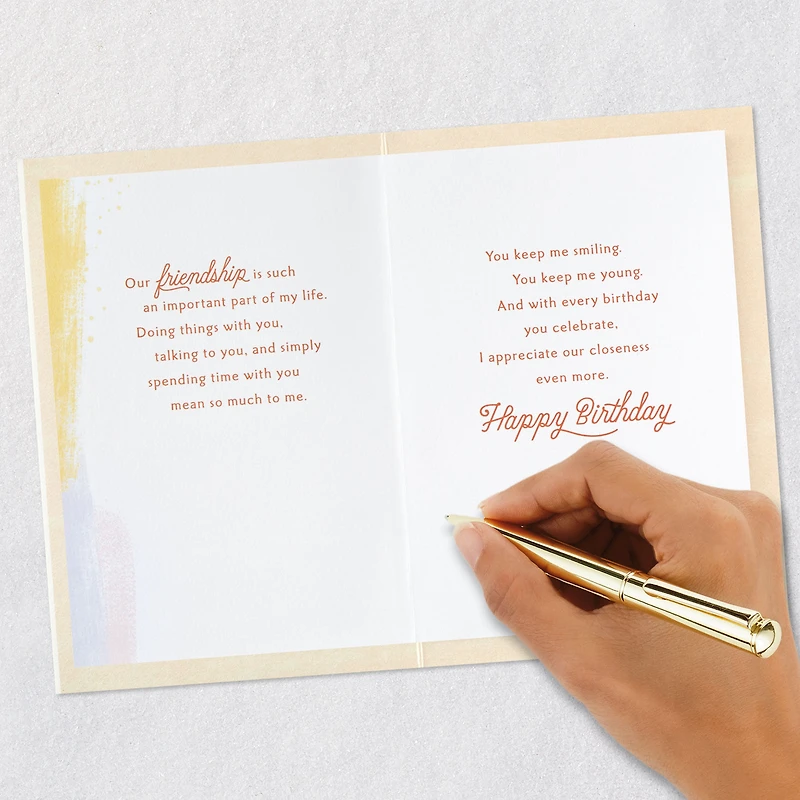 Our friendship is such
an important part of my life.
Doing things with you,
talking to you, and simply
spending time with you
mean so much to me.
You keep me smiling.
You keep me young.
And with every birthday
you celebrate,
I appreciate our closeness
even more.
Happy Birthday